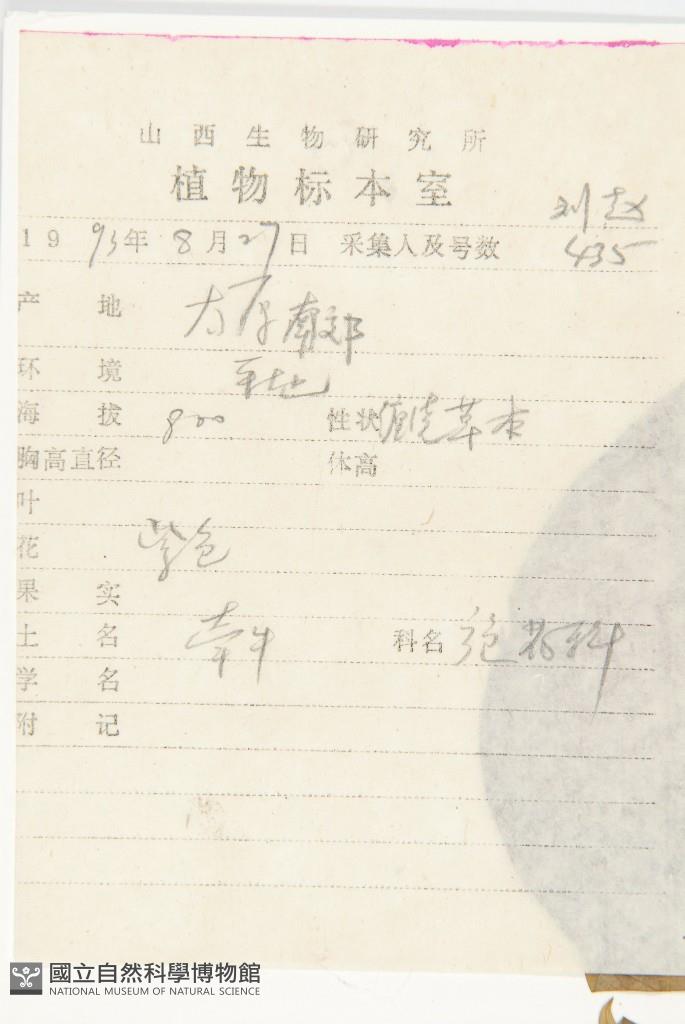 山西生物研究所
植物标本室
刘 赵
1993年8月27日 采集人及号数 435
产地 太原南郊
环境 平地
海拔 800 性状 缠绕草本
胸高直径 体高
叶
花 紫色
果实
土名 牵牛 科名 旋花科
学名
附记
國立自然科學博物館
NATIONAL MUSEUM OF NATURAL SCIENCE